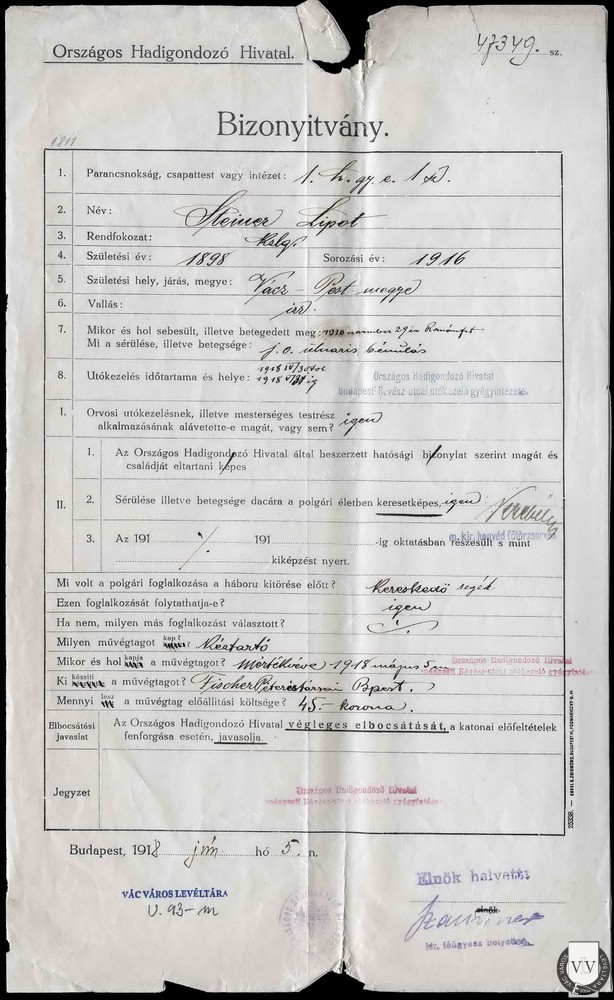 Országos Hadigondozó Hivatal.
47349. sz.
Bizonyitvány.
1. Parancsnokság, csapattest vagy intézet: 1. h. gy. e. 1
2. Név: Steiner Lipót
3. Rendfokozat:
4. Születési év: 1898 Sorozási év: 1916
5. Születési hely, járás, megye: Vácz - Pest megye
6. Vallás: izr.
7. Mikor és hol sebesült, illetve betegedett meg: november 29 én
Mi a sérülése, illetve betegsége: j. o. ulnaris bénulás
8. Utókezelés időtartama és helye: 1918 IV/30 tól
1918 ig
Országos Hadigondozó Hivatal
budapesti Révész-utcai utókezelő gyógyintézete.
I. Orvosi utókezelésnek, illetve mesterséges testrész
alkalmazásának alávetette-e magát, vagy sem? igen
II. 1. Az Országos Hadigondozó Hivatal által beszerzett hatósági bizonylat szerint magát és
családját eltartani képes
2. Sérülése illetve betegsége dacára a polgári életben keresetképes, igen
m. kir. honvéd főtörzsorvos
3. Az 191 191 -ig oktatásban részesült s mint
kiképzést nyert.
Mi volt a polgári foglalkozása a háboru kitörése előtt? kereskedő segéd
Ezen foglalkozását folytathatja-e? igen
Ha nem, milyen más foglalkozást választott?
Milyen művégtagot kap? Kéztartó
Mikor és hol kapja a művégtagot? Mértékvéve 1918 május 5 én
Országos Hadigondozó Hivatal
budapesti Révész-utcai utókezelő gyógyintézete
Ki készíti a művégtagot? Fischer Péter és társai Bpest.
Mennyi lesz a művégtag előállitási költsége? 45 - korona.
Elbocsátási javaslat
Az Országos Hadigondozó Hivatal végleges elbocsátását, a katonai előfeltételek
fenforgása esetén, javasolja.
Jegyzet
Országos Hadigondozó Hivatal
budapesti Révész-utcai utókezelő gyógyintézete
Budapest, 1918 jun. hó 5. n.
VÁC VÁROS LEVÉLTÁRA
V. 93-m
Elnök helyett:
elnök.
kir. főügyész helyettes
VV